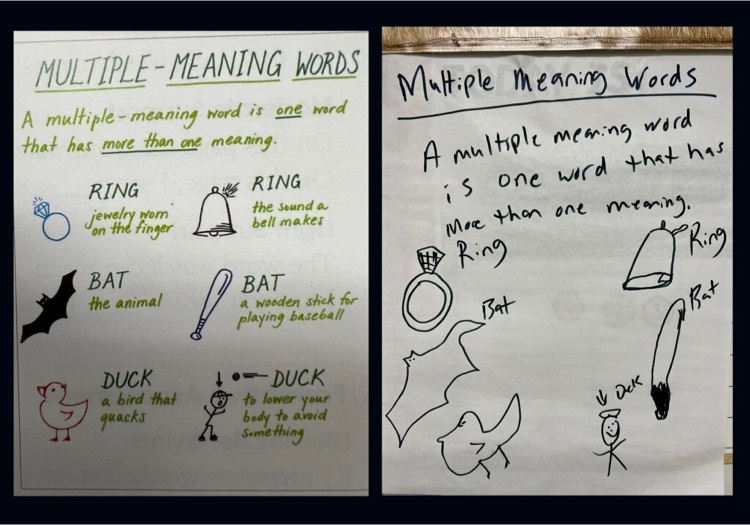 MULTIPLE-MEANING WORDS
A multiple-meaning word is one word
that has more than one meaning.
RING
jewelry worn
on the finger
RING
the sound a
bell makes
BAT
the animal
BAT
a wooden stick for
playing baseball
DUCK
a bird that
quacks
DUCK
to lower your
body to avoid
something
Multiple Meaning Words
A multiple meaning word
is one word that has
more than one meaning.
Ring
Ring
Bat
Bat
Duck